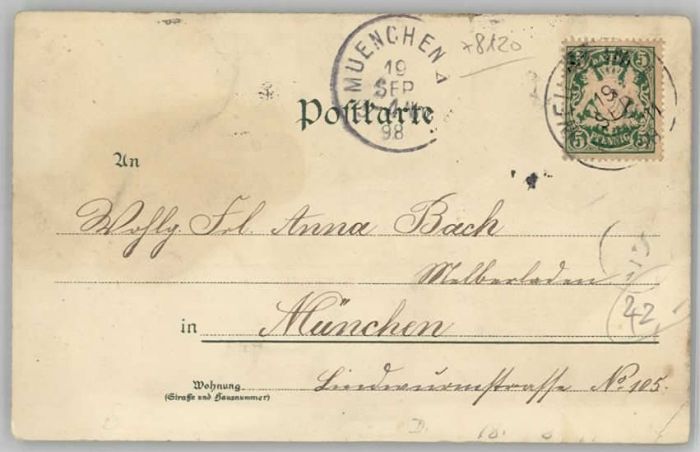 MUENCHEN A
19
SEP
98
*8120
5 5
5 PFENNIG 5
19
SEP
Postkarte
An
Wohlg. Frl. Anna Bach
Melberladen
42
in München
Wohnung
(Straße und Hausnummer)
Lindwurmstrasse No. 105.